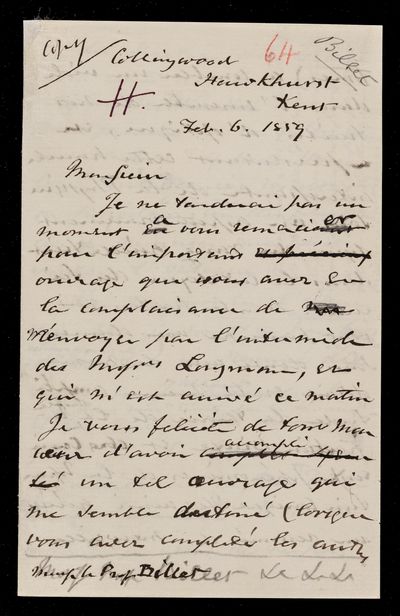 Copy
64
Billet
Collingwood
H.
Hawkhurst
Kent
Feb. 6. 1859
Monsieur
Je ne tarderai pas un
moment à vous remercier
pour l'important et précieux
ouvrage que vous avez eu
la complaisance de
m'envoyer par l'intermède
des Messrs Longman, et
qui m'est arrivé ce matin
Je vous felicite de tout mon
cœur d'avoir accompli
un tel ouvrage qui
me semble destiné (lorsque
vous aurez completé les autres
Prof Billet